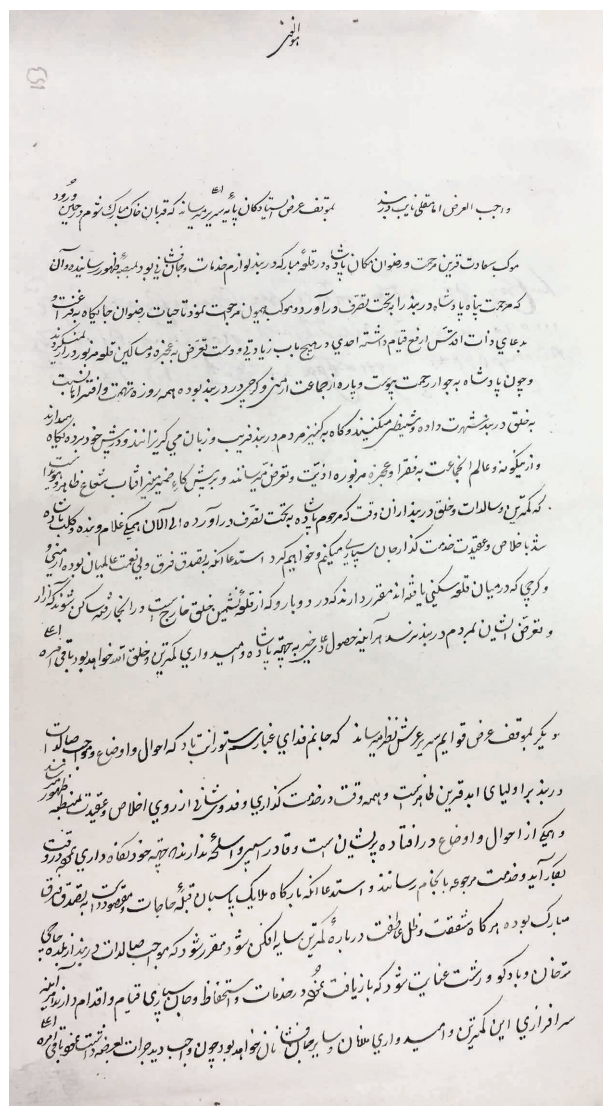 هو الغنی
واجب العرض امامقلی نایب دربند بموقف عرض ایستادکان پایهٔ سریر میرساند که قربان خاک مبارک شوم در حین ورود
موکب سعادت قرین مرحمت و رضوان مکان پادشاه در قلعهٔ مبارکه دربند لوازم خدمات و جان بود بمنصهٔ ظهور رسانیده و آن
که مرحمت پناه پادشاه دربند را بتحت تصرف درآورد و موکب همیون مرجعت نمود تا حیات رضوان جایکاه به فراغت
بدعای ذات اقدس ارفع قیام داشته احدی در هیچ باب زیادتی و دست تعرض به عجزه و مساکین قلعه مزبور دراز نمیکردند
و چون پادشاه به جوار رحمت پیوست و پاره از جماعت ارمنی و کرجی در دربند بوده همه روزه تهمت و افترا نسبت
به خلق دربند شهرت داده و میکنند و کاه به کنیز مردم دربند فریب و زبان می کریزانند و در پیش خود برده نکاه
و ازینکونه عالم الجماعت به فقرا و عجزه مزبوره اذیت و تعرض میرسانند و برپیش کاه ضمیر منیر آفتاب شعاع ظاهر و هویدا
که کمترین و سادات و خلق دربند از آن وقت که مرحوم پادشاه به تحت تصرف درآورده الی الآن همکی غلام و بنده
شده باخلاص و عقیدت خدمت کذار جان سپاری میکنم و خواهیم کرد استدعا آنکه بتصدق فرق ولی نعمت عالمیان بوده ارمنی و
و کرجی که درمیان قلعه سکنی یافته اند مقرر دارند که در دوبارو که از قلعهٔ نشیمن خلق خارج است در آنجا رفته ساکن شوند که آزار
و تعرض ایشان بمردم دربند نرسد هرآینه حصول دعای خیر به جهتهٔ پادشاه و امیدواری کمترین و خلق الله خواهد بود باقی امره
دیکر بموقف عرض قوایم سریر عرش نظیر میرساند که جانم فدای غبار سم ستورانت باد که احوال و اوضاع و مواجب
دربند بر اولیای ابد قرین ظاهر است و همه وقت در خدمت کذاری و فدوشانی از روی اخلاص و عقیدت بمنصهٔ ظهور
و همکی از احوال و اوضاع در افتاده پریشان است و قادر اسپ و اسلحه ندارند به جهتهٔ خود نکاه داری نموده در وقت
بکار آید و خدمت مرجوعه بانجام رسانند و استدعا آنکه بارکاه ملایک پاسبان قبلهٔ حاجات و مقصود است به تصدق فرق
مبارک بوده هرکاه شفقت و ظل عاطفت دربارهٔ کمترین سایه افکن شود مقرر شود که مواجب دربند از بلده حاجی
ترخان و بادکو و رشت عنایت شود که بازیافت نموده در خدمات و استحفاظ و جان سپاری قیام و اقدام دارند هرآینه
سرافرازی این کمترین و امیدواری و سایر خواهد بود چون واجب دید جرات بعریضه داشت نمود باقی امره